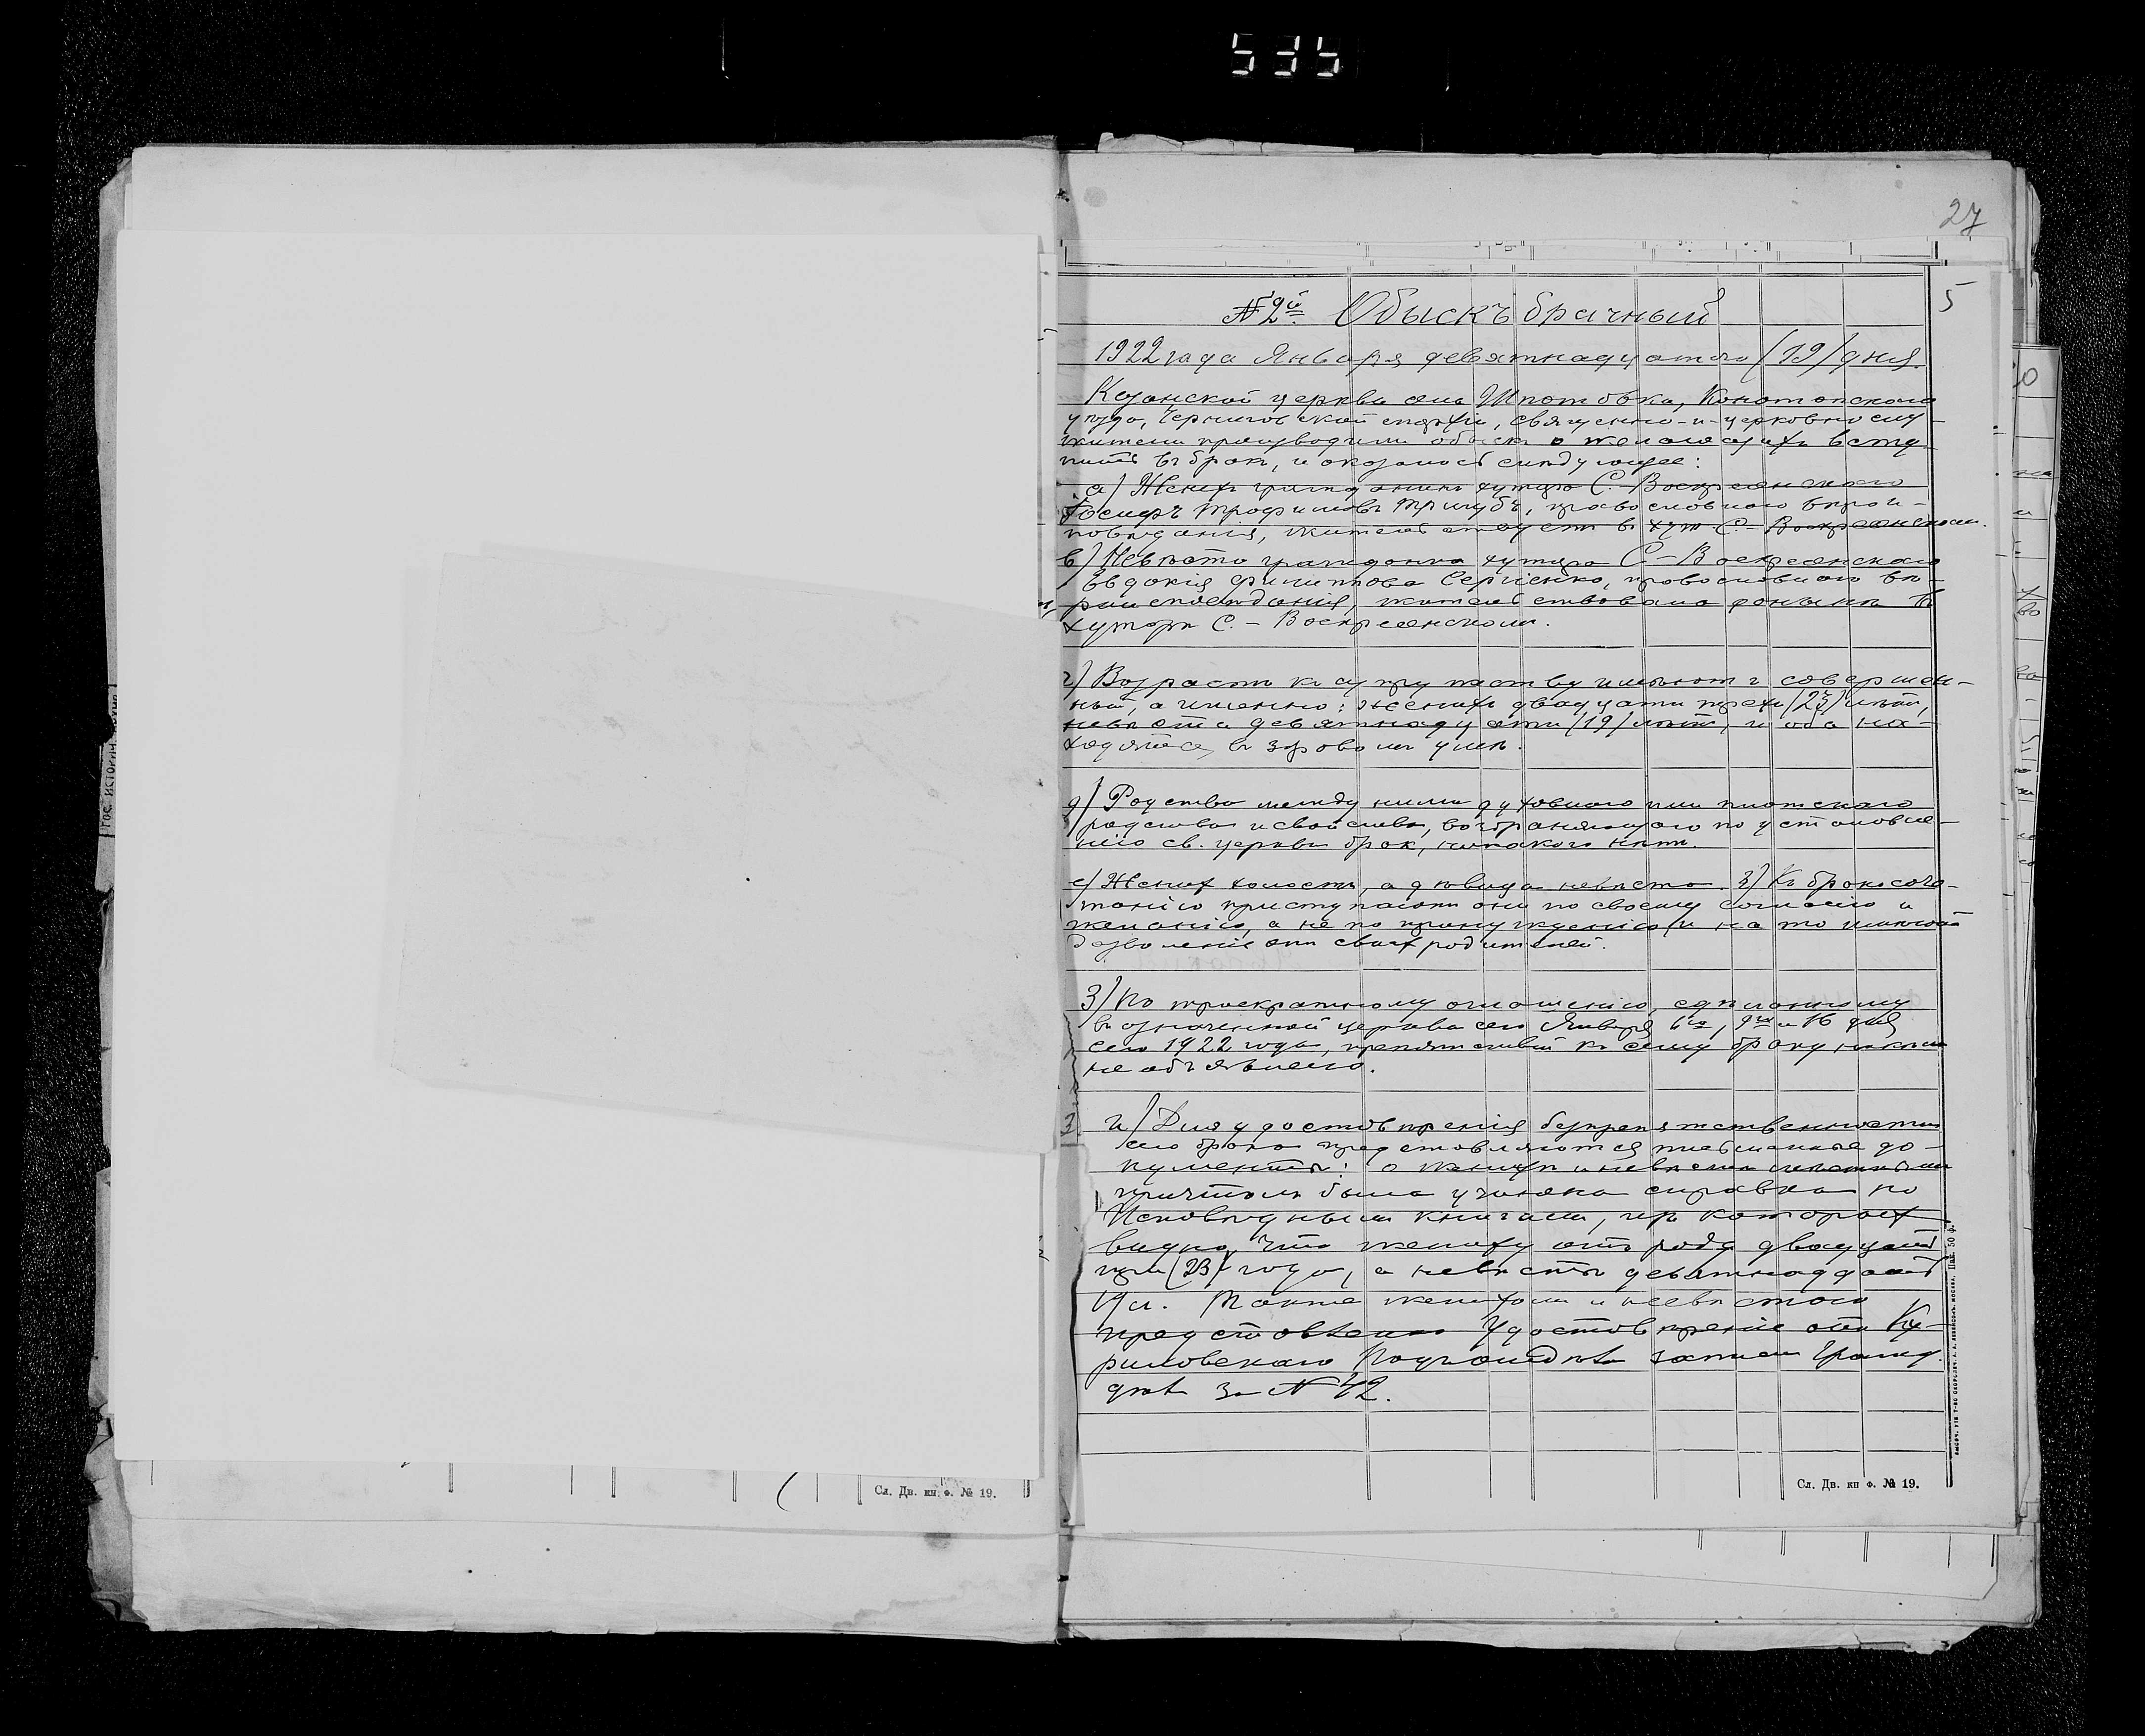 535
27
5
№ 2й Обыскъ брачный
1922 года Января девятнадцатого (19) дня.
Казанской церкви села Шпотовка, Конотопскаго
уѣзда, Черниговской епархіи, священно-и-церковнослу-
жители производили обыскъ о желающихъ всту-
пить въ бракъ, и оказалось слѣдующее:
а) Женихъ гражданинъ хутора С.-Воскресенскаго
Іосифъ Трофимовъ Тригубъ, православнаго вѣрои-
повѣданія, жительствуетъ въ хут. С.-Воскресенскомъ.
в) Невѣста гражданка хутора С-Воскресенскаго
Евдокія Филиппова Сергіенко, православнаго вѣ-
роисповѣданія, жительствовала донынѣ въ
хуторѣ С.-Воскресенскомъ.
г) Возрастъ къ супружеству имѣютъ совершен-
ный, а именно: женихъ двадцати трехъ (23) лѣтъ,
невѣста девятнадцати (19) лѣтъ, и оба на-
ходятся въ здравомъ умѣ.
д) Родства между ними духовнаго или плотскаго
родства и свойства, возбраняющаго по установле-
нію св. церкви бракъ, никакого нѣтъ.
е) Женихъ холостъ, а дѣвица невѣста. З) Къ бракосоче-
танію приступаютъ они по своему согласію и
желанію, а не по принужденію и на то имѣютъ
дозволеніе отъ своихъ родителей.
З) По троекратному оглашенію, сдѣланному
въ означенной церкви сего Января 6го, 9го и 16 дня
сего 1922 года, препятствій къ сему браку никѣмъ
не объявлено.
и) Для удостовѣренія безпрепятственности
сего брака представляются письменные до-
кументы: о женихѣ и невѣстѣ
причтомъ была учинена справка по
Исповѣднымъ книгамъ, изъ которыхъ
видно, что жениху отъ роду двадцать
три (23) года, а невѣстѣ девятнадцать
19 л. Также женихомъ и невѣстою
представлено Удостовѣреніе отъ Ку-
риловскаго Подъотдѣла записи Гражд.
дѣлъ за № 42.
Сл. Дв. кн ф. № 19.
Сл. Дв. кн ф. № 19.